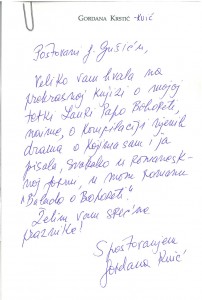 GORDANA KRSTIĆ - KUIĆ
Poštovani g. Gušić,
Veliko vam hvala na
prekrasnoj knjizi o mojoj
tetki Lauri Papo Bohoreti,
naime, o kompilaciji njenih
drama o kojima sam i ja
pisala, svakako u romanesk-
noj formi, u mom romanu
"Balada o Bohoreti".
Želim vam srećne
praznike!
S poštovanjem
Gordana Kuić